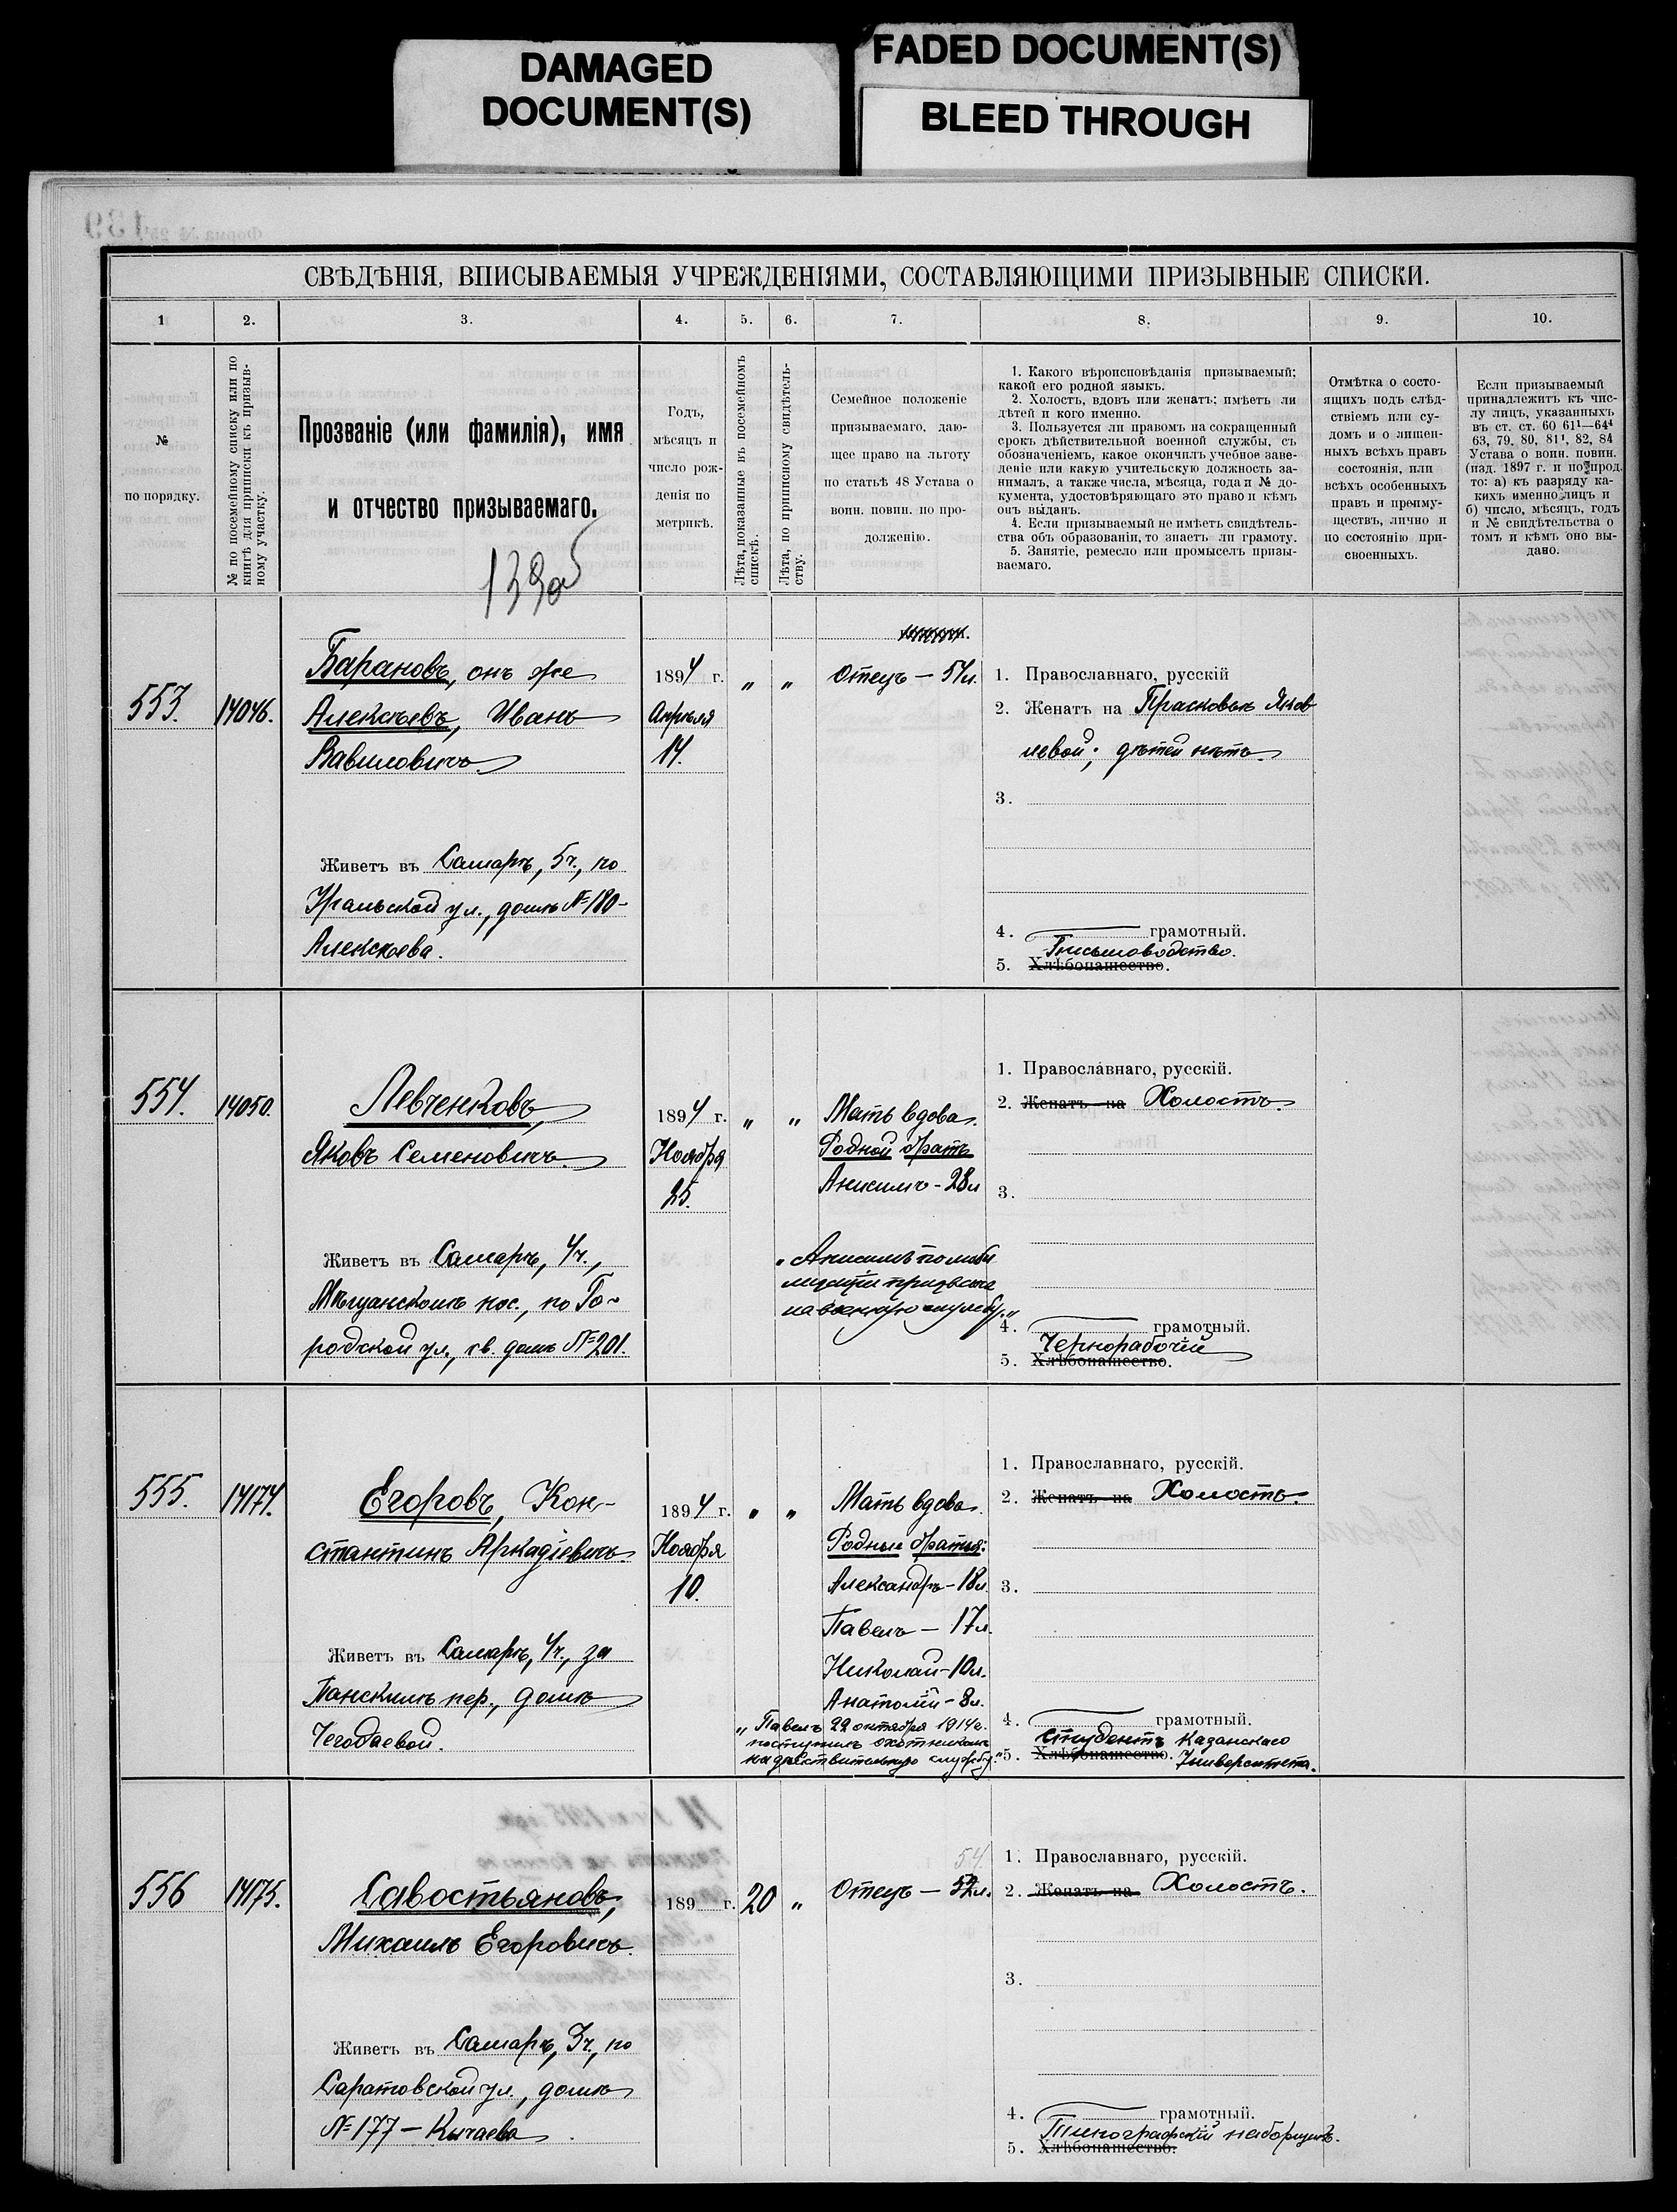 DAMAGED
DOCUMENT(S)
FADED DOCUMENT(S)
BLEED THROUGH
СВѢДѢНІЯ, ВПИСЫВАЕМЫЯ УЧРЕЖДЕНІЯМИ, СОСТАВЛЯЮЩИМИ ПРИЗЫВНЫЕ СПИСКИ.
1 2. 3. 4. 5. 6. 7. 8. 9. 10.
№
по порядку.
№ по посемейному списку или по
книгѣ для приписки къ призыв-
ному участку.
Прозваніе (или фамилія), имя
и отчество призываемаго.
139об
Годъ,
мѣсяцъ и
число рож-
денія по
метрикѣ.
Лѣта, показанные въ посемейномъ
спискѣ.
Лѣта, по приписному свидѣтель-
ству.
Семейное положеніе
призываемаго, даю-
щее право на льготу
по статьѣ 48 Устава о
воин. повин. по про-
долженію.
1. Какого вѣроисповѣданія призываемый;
какой его родной языкъ.
2. Холостъ, вдовъ или женатъ; имѣетъ ли
дѣтей и кого именно.
3. Пользуется ли правомъ на сокращенный
срокъ дѣйствительной военной службы, съ
обозначеніемъ, какое окончилъ учебное заве-
деніе или какую учительскую должность за-
нималъ, а также числа, мѣсяца, года и № до-
кумента, удостовѣряющаго это право и кѣмъ
онъ выданъ.
4. Если призываемый не имѣетъ свидѣтель-
ства объ образованіи, то знаетъ ли грамоту.
5. Занятіе, ремесло или промыселъ призы-
ваемаго.
Отмѣтка о состо-
ящихъ подъ слѣд-
ствіемъ или су-
домъ и о лишен-
ныхъ всѣхъ правъ
состоянія, или
всѣхъ особенныхъ
правъ и преиму-
ществъ, лично и
по состоянію при-
своенныхъ.
Если призываемый
принадлежитъ къ чис-
лу лицъ, указанныхъ
въ ст. ст. 60 61¹—64⁴
63, 79, 80, 81¹, 82, 84
Устава о воин. повин.
(изд. 1897 г. и по прод.
то: а) къ разряду ка-
кихъ именно лицъ и
б) число, мѣсяцъ, годъ
и № свидѣтельства о
томъ и кѣмъ оно вы-
дано.
553. 14046.
Барановъ, онъ же
Алексѣевъ, Иванъ
Вавиловичъ
Живетъ въ Самарѣ, 5ч., по
Уральской ул., домъ № 180-
Алексѣева.
1894 г.
Апрѣля
14.
„ „
Отецъ — 51л.
1. Православнаго, русскій
2. Женатъ на Прасковьѣ Яков
левой; дѣтей нѣтъ.
3.
4. грамотный.
Письмоводство.
5. Хлѣбопашество.
554. 14050.
Левченковъ,
Яковъ Семеновичъ
Живетъ въ Самарѣ, 4ч.,
Мѣщанскомъ пос., по Го-
родской ул., св. домъ № 201.
1894 г.
Ноября
25.
„ „
Мать вдова.
Родной братъ
Анисимъ - 28л
„Анисимъ по моби
лизаціи призванъ
на военную службу."
1. Православнаго, русскій.
2. Женатъ на Холостъ.
3.
4. грамотный.
Чернорабочій
5. Хлѣбопашество.
555. 14174.
Егоровъ, Кон-
стантинъ Аркадіевичъ.
Живетъ въ Самарѣ, 4ч., за
Панскимъ пер., домъ
Чегодаевой.
1894 г.
Ноября
10.
„ „
Мать вдова.
Родные братья:
Александръ - 18л.
Павелъ — 17л.
Николай - 10л.
Анатолій - 8л.
„Павелъ 22 октября 1914 г.
поступилъ охотникомъ
на дѣйствительную службу."
1. Православнаго, русскій.
2. Женатъ на Холостъ.
3.
4. грамотный.
Студентъ Казанскаго
5. Хлѣбопашество. Университета.
556 14175.
Савостьяновъ,
Михаилъ Егоровичъ.
Живетъ въ Самарѣ, 3ч., по
Саратовской ул., домъ
№ 177 — Кычаева
189 г. 20 „
54
Отецъ — 52л.
1. Православнаго, русскій.
2. Женатъ на Холостъ.
3.
4. грамотный.
Типографскій наборщикъ.
5. Хлѣбопашество.